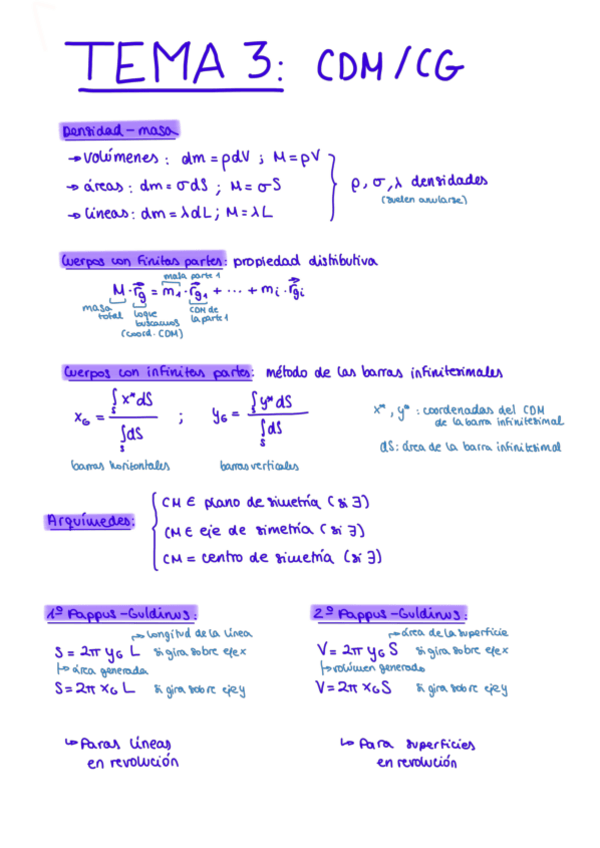 TEMA 3: CDM/CG
Densidad - masa
→ Volúmenes: dm = ρdV ; M = ρV
→ áreas: dm = σdS ; M = σS
→ líneas: dm = λdL ; M = λL
ρ, σ, λ densidades
(suelen anularse)
Cuerpos con finitas partes: propiedad distributiva
masa parte 1
M · r⃗g = m₁ · r⃗g₁ + ... + mᵢ · r⃗gᵢ
masa total
lo que buscamos (coord. CDM)
CDM de la parte 1
Cuerpos con infinitas partes: método de las barras infinitesimales
x_G = ∫_S x* dS / ∫_S dS ; y_G = ∫_S y* dS / ∫_S dS
barras horizontales
barras verticales
x*, y*: coordenadas del CDM
de la barra infinitesimal
dS: área de la barra infinitesimal
Arquímedes:
CM ∈ plano de simetría (si ∃)
CM ∈ eje de simetría (si ∃)
CM = centro de simetría (si ∃)
1º Pappus-Guldinus:
→ longitud de la línea
S = 2π y_G L si gira sobre eje x
↳ área generada
S = 2π x_G L si gira sobre eje y
↳ Paras líneas
en revolución
2º Pappus-Guldinus:
→ área de la superficie
V = 2π y_G S si gira sobre eje x
↳ volumen generado
V = 2π x_G S si gira sobre eje y
↳ Para superficies
en revolución